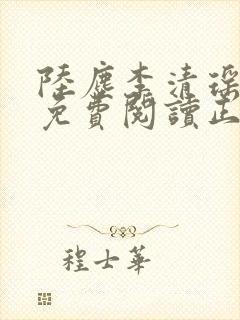 陸塵李清瑤
免費閱讀正
程士華